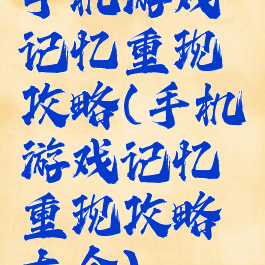 手机游戏
记忆重现
攻略(手机
游戏记忆
重现攻略
大全)